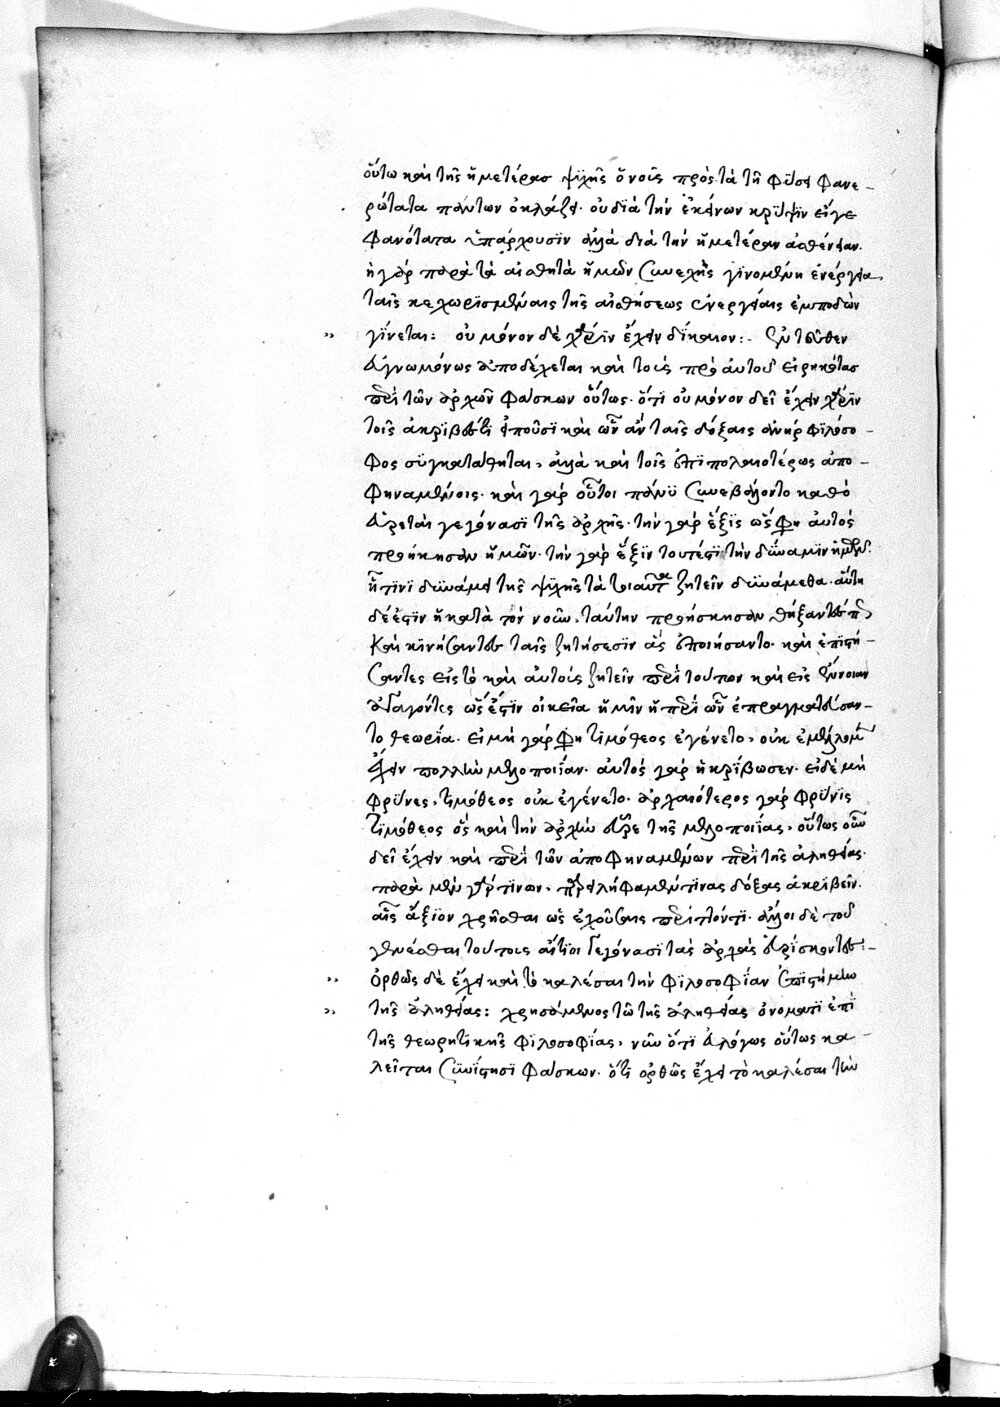 οὕτω καὶ τῆς ἡμετέρας ψυχῆς ὁ νοῦς πρὸς τὰ τῇ φύσει φανε-
ρώτατα πάντων ὀκλάζει. οὐ διὰ τὴν ἐκείνων κρύψιν εἴγε
φανότατα ὑπάρχουσιν ἀλλὰ διὰ τὴν ἡμετέραν ἀσθένειαν.
ἡ γὰρ παρὰ τὰ αἰσθητὰ ἡμῶν συνεχῆς γινομένη ἐνέργεια
ταῖς κεχωρισμέναις τῆς αἰσθήσεως ἐνεργείαις ἐμποδὼν
γίνεται: οὐ μόνον δὲ χάριν ἔχειν δίκαιον:- ἐντεῦθεν
εὐγνωμόνως ἀποδέχεται καὶ τοὺς πρὸ αὐτοῦ εἰρηκότας
περὶ τῶν ἀρχῶν φάσκων οὕτως. ὅτι οὐ μόνον δεῖ ἔχειν χάριν
τοῖς ἀκριβῶς τι εἰποῦσι καὶ ὧν ἂν ταῖς δόξαις ἀνὴρ φιλόσο-
φος συγκατάθηται, ἀλλὰ καὶ τοῖς ἐπιπολαιοτέρως ἀπο-
φηναμένοις. καὶ γὰρ οὗτοι πάνυ συνεβάλοντο καθὸ
εὑρεταὶ γεγόνασι τῆς ἀρχῆς. τὴν γὰρ ἕξις ὥς φη αὐτὸς
προήσκησαν ἡμῶν. τὴν γὰρ ἕξιν τουτέστι τὴν δύναμιν ἡμῶν.
ᾗτινι δυνάμει τῆς ψυχῆς τὰ τοιαῦτα ζητεῖν δυνάμεθα. αὕτη
δέ ἐστιν ἡ κατὰ τὸν νοῦν. ταύτην προήσκησαν θήξαντες
καὶ κινήσαντες ταῖς ζητήσεσιν ἃς ἐποιήσαντο. καὶ ἐπιστή-
σαντες εἰς τὸ καὶ αὐτοὺς ζητεῖν περὶ τούτων καὶ εἰς ἔννοιαν
ἀγαγόντες ὥς ἐστιν οἰκεία ἡμῖν ἡ περὶ ὧν ἐπραγματεύσαν-
το θεωρία. εἰ μὴ γάρ φη τιμόθεος ἐγένετο, οὐκ ἐμέλλομεν
ἔχειν πολλὴν μελοποιίαν. αὐτὸς γὰρ ἠκρίβωσεν. εἰ δὲ μὴ
φρύνις, τιμόθεος οὐκ ἐγένετο. ἀρχαιότερος γὰρ φρύνις
τιμόθεος ὃς καὶ τὴν ἀρχὴν εὗρε τῆς μελοποιίας, οὕτως οὖν
δεῖ ἔχειν καὶ περὶ τῶν ἀποφηναμένων περὶ τῆς ἀληθείας.
παρὰ μὲν γάρ τινων, παρειλήφαμέν τινας δόξας ἀκριβεῖν.
αἷς ἄξιον χρῆσθαι ὡς ἐχούσαις περὶ παντί. ἄλλοι δὲ τοῦ
γενέσθαι τούτοις αἴτιοι γεγόνασι τὰς ἀρχὰς εὑρίσκοντες:-
ὀρθῶς δὲ ἔχει καὶ τὸ καλέσαι τὴν φιλοσοφίαν ἐπιστήμην
τῆς ἀληθείας: χρησάμενος τῷ τῆς ἀληθείας ὀνόματι ἐπὶ
τῆς θεωρητικῆς φιλοσοφίας, νῦν ὅτι εὐλόγως οὕτως κα-
λεῖται συνίστησι φάσκων. ὅτι ὀρθῶς ἔχει τὸ καλέσαι τὴν